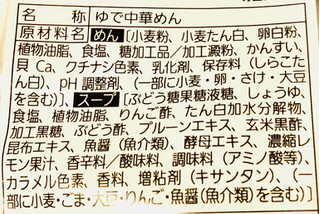 品名 ゆで中華めん
原材料名 めん[小麦粉、小麦たん白、卵白粉、
植物油脂、食塩、糖加工品/加工澱粉、かんすい、
貝Ca、クチナシ色素、乳化剤、保存料(しらこた
ん白)、pH調整剤、(一部に小麦・卵・さけ・大豆
を含む)] スープ[ぶどう糖果糖液糖、しょうゆ、
食塩、植物油脂、りんご酢、たん白加水分解物、
加工黒糖、ぶどう酢、プルーンエキス、玄米黒酢、
昆布エキス、魚醤(魚介類)、酵母エキス、濃縮レ
モン果汁、香辛料/酸味料、調味料(アミノ酸等)、
カラメル色素、香料、増粘剤(キサンタン)、(一
部に小麦・ごま・大豆・りんご・魚醤(魚介類)を含む)]